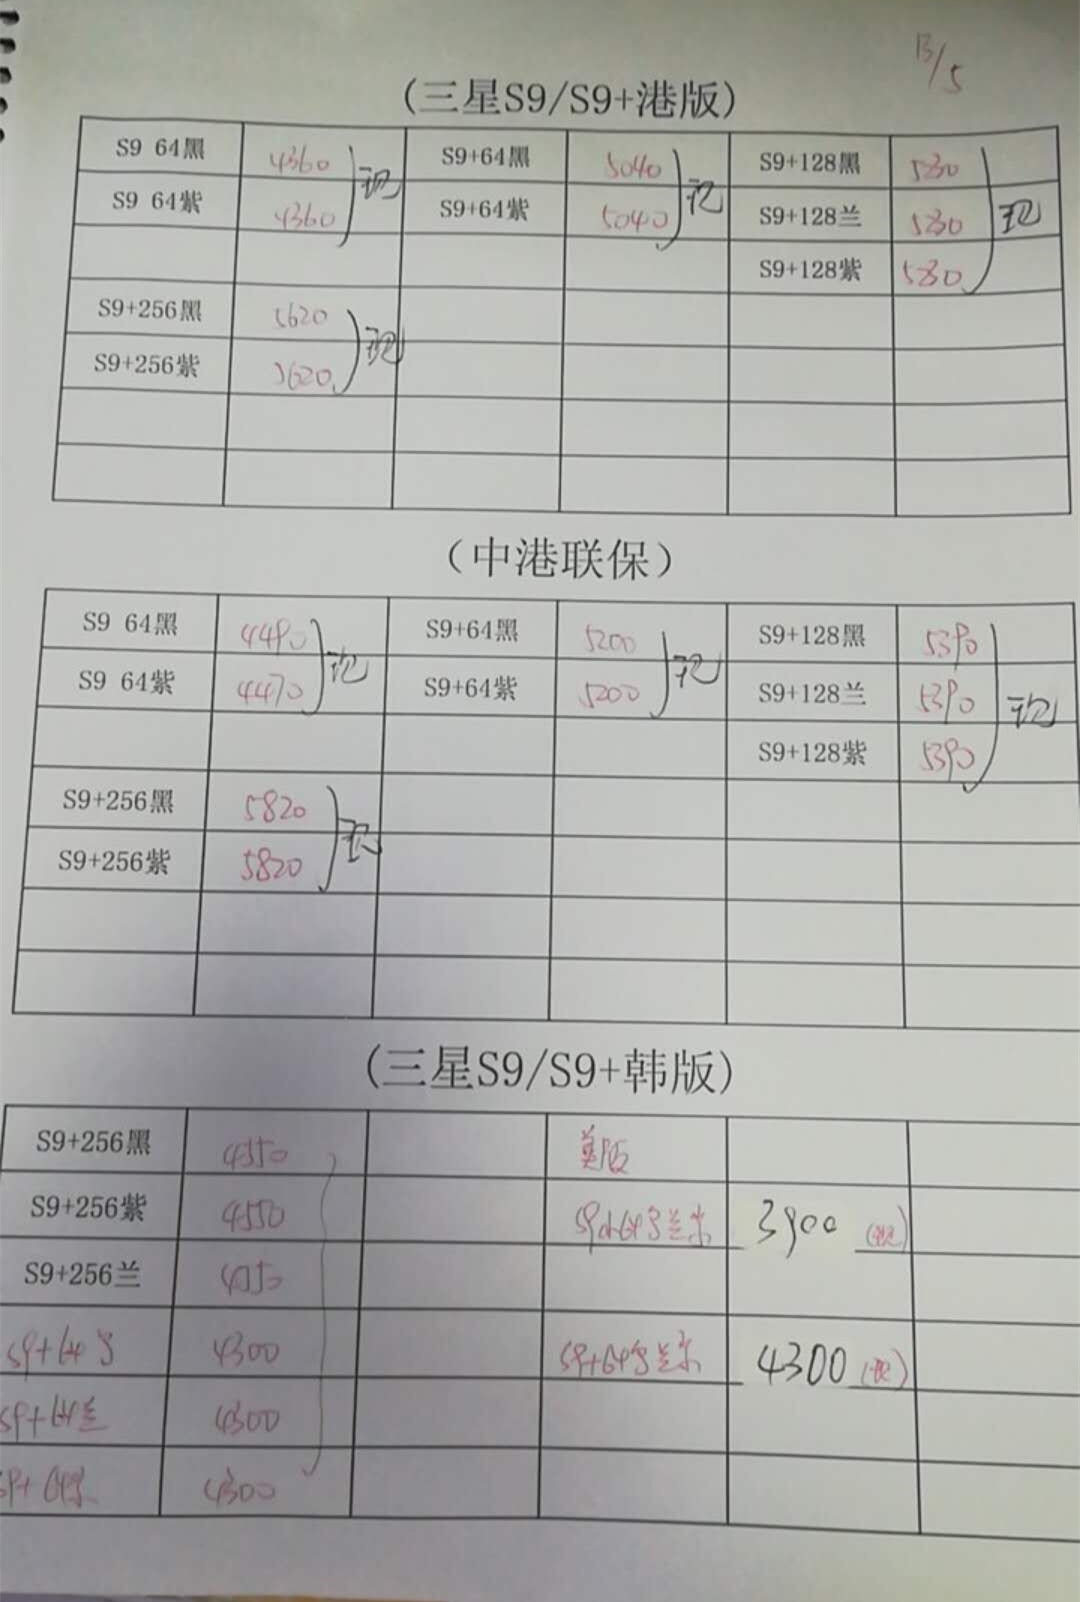 13/5
(三星S9/S9+港版)
S9 64黑 4360 现 S9+64黑 5040 现 S9+128黑 5230 现
S9 64紫 4360 S9+64紫 5040 S9+128兰 5230
S9+128紫 5230
S9+256黑 5620 现
S9+256紫 5620
(中港联保)
S9 64黑 4490 现 S9+64黑 5200 现 S9+128黑 5390 现
S9 64紫 4470 S9+64紫 5200 S9+128兰 5390
S9+128紫 5390
S9+256黑 5820 现
S9+256紫 5820
(三星S9/S9+韩版)
S9+256黑 4550 美版
S9+256紫 4550 3900 (现)
S9+256兰 4550
S9+64 4300 S9+64 4300 (现)
S9+64兰 4300
S9+64 4300